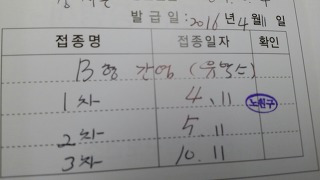 발급일: 2016년 4월 11일
접종명 접종일자 확인
B형 간염 (유박스)
1차 4. 11 노원구
2차 5. 11
3차 10. 11